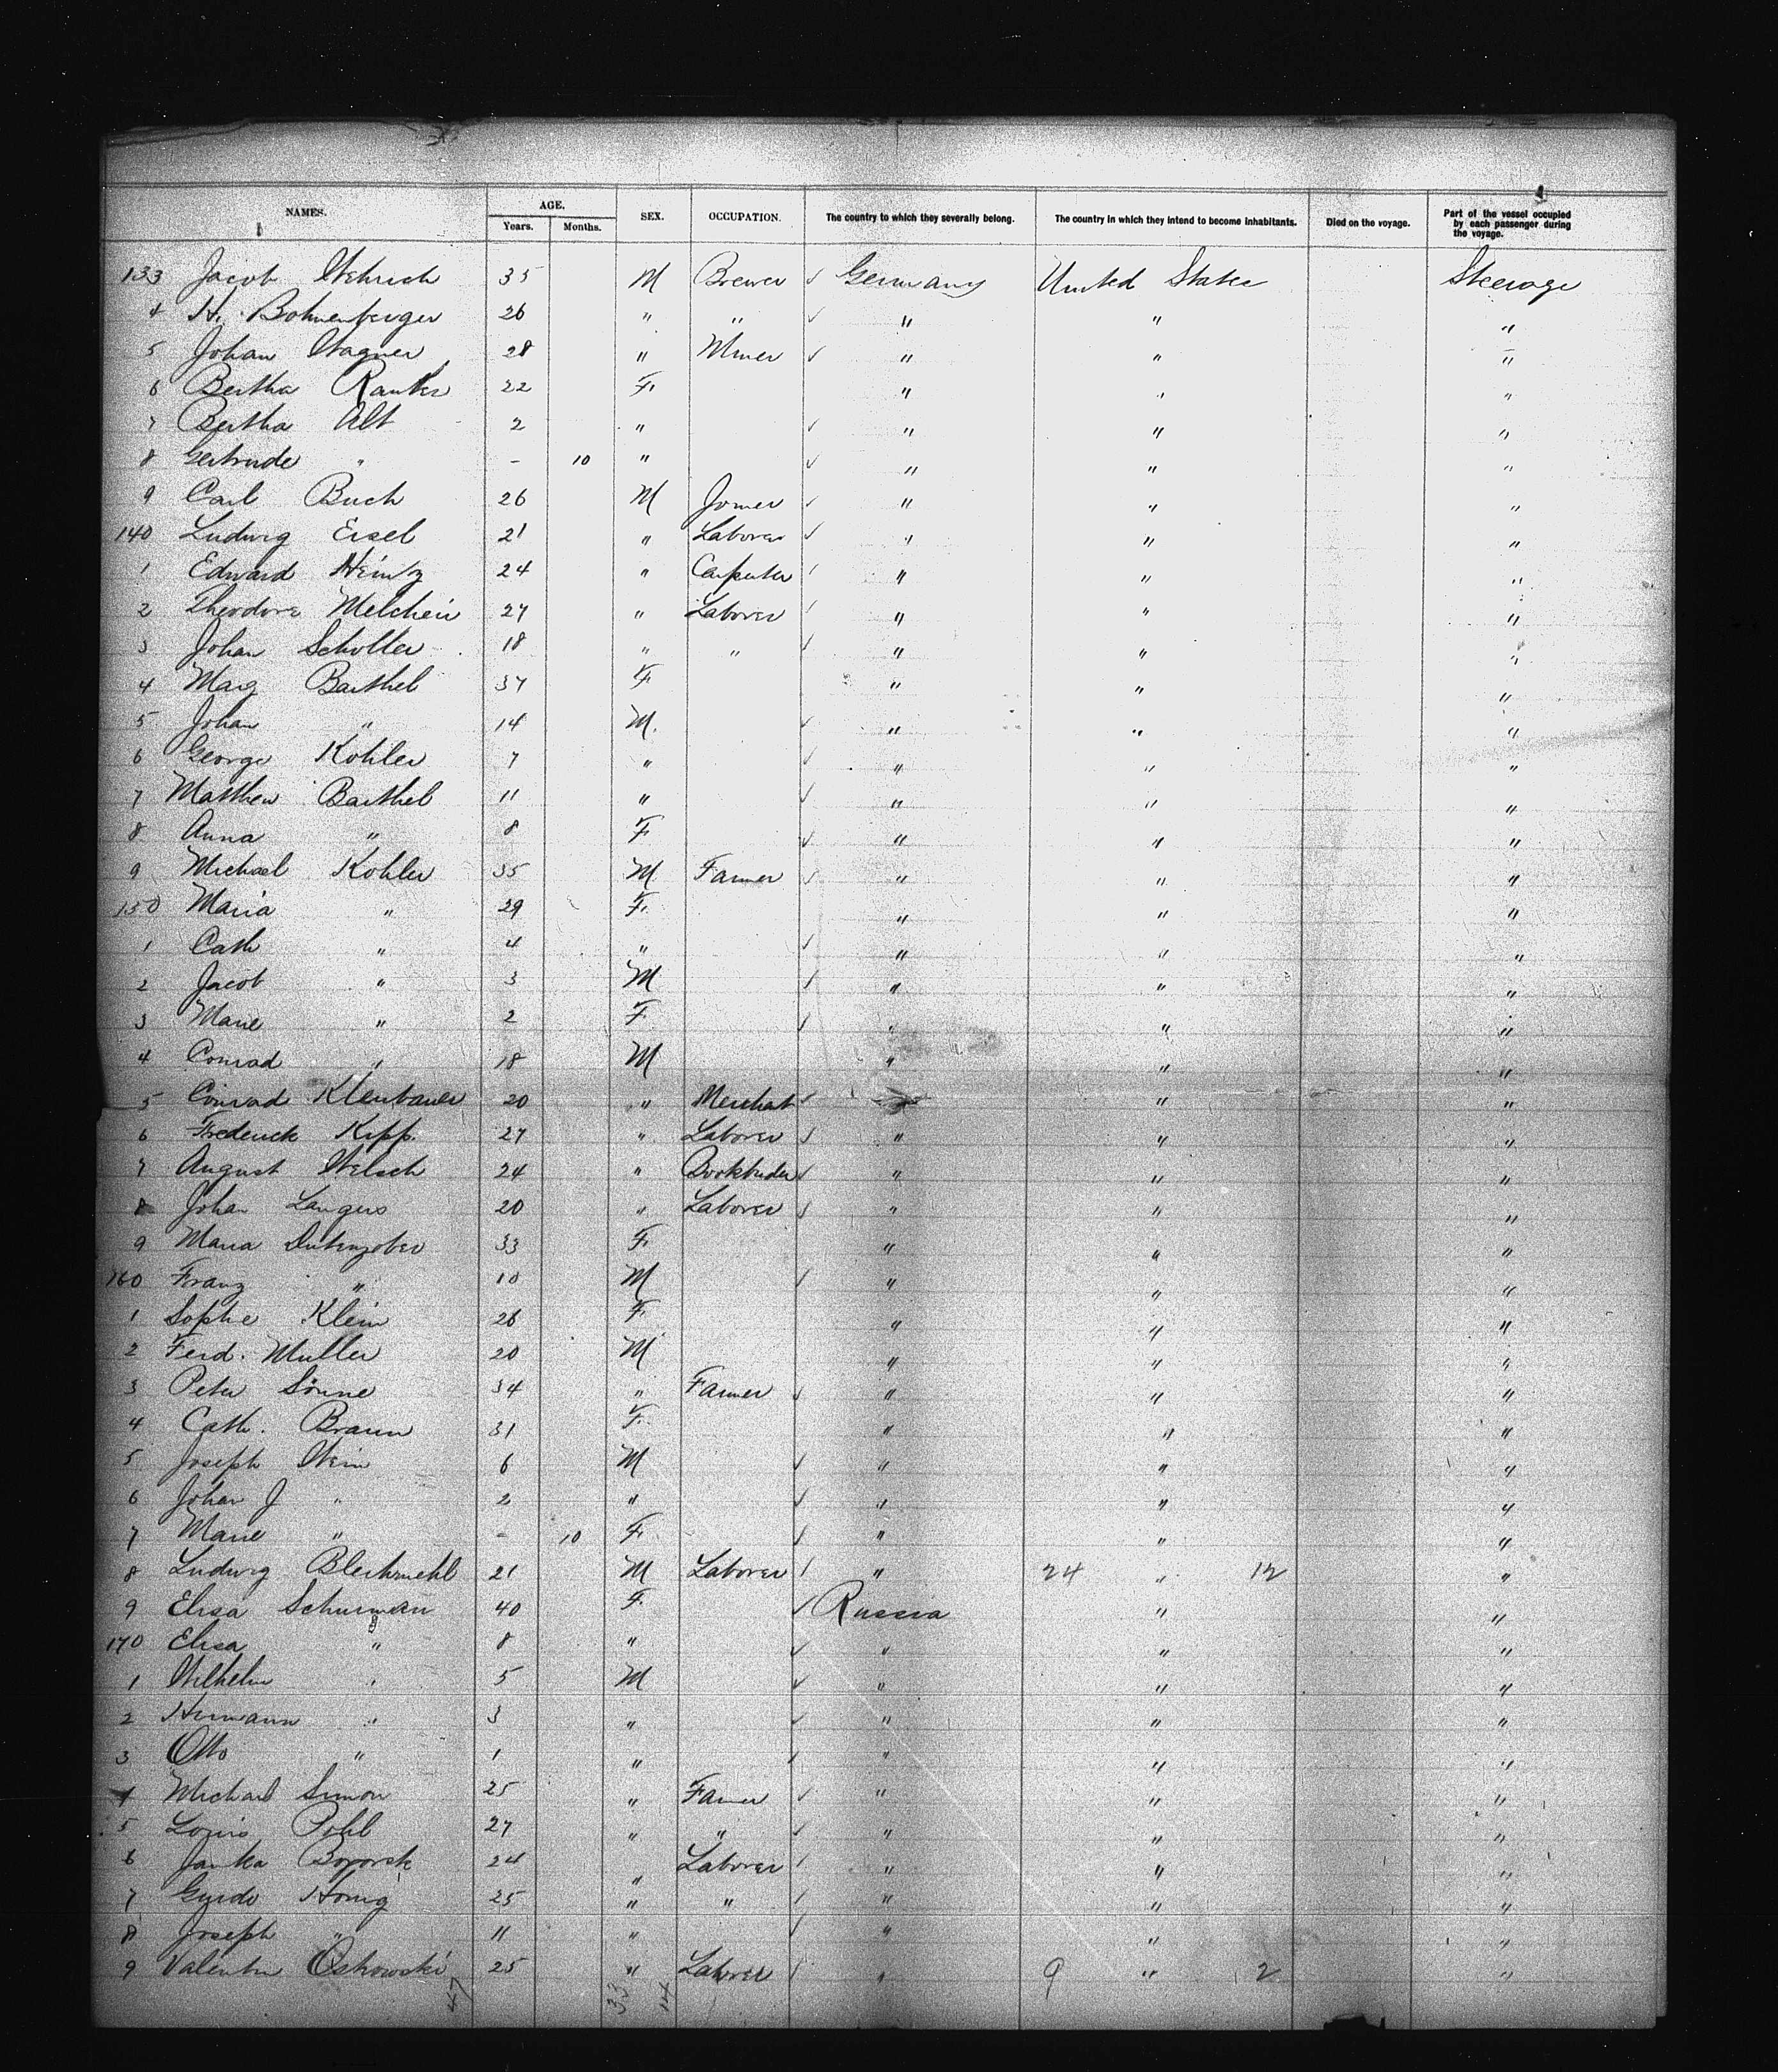 NAMES. AGE. Years. Months. SEX. OCCUPATION. The country to which they severally belong. The country in which they intend to become inhabitants. Died on the voyage. Part of the vessel occupied by each passenger during the voyage.
133 Jacob 35 M Brewer ✓ Germany United States Steerage
4 H. Bohnenberger 26 " " ✓ " " "
5 Johan Wagner 28 " Miner ✓ " " "
6 Bertha 22 F. " " "
7 Bertha Alt 2 " ✓ " " "
8 Gertrude " - 10 " ✓ " " "
9 Carl Buch 26 M Joiner ✓ " " "
140 Ludwig Eisel 21 " Laborer ✓ " " "
1 Edward Heintz 24 " Carpenter ✓ " " "
2 Theodore Melcheir 27 " Laborer ✓ " " "
3 Johan Scholler 18 " " ✓ " " "
4 Marg Barthel 37 F " " "
5 Johan " 14 M. ✓ " " "
6 George Kohler 7 " ✓ " " "
7 Matthew Barthel 11 " ✓ " " "
8 Anna " 8 F ✓ " " "
9 Michael Kohler 35 M Farmer ✓ " " "
150 Maria " 29 F. " " "
1 Cath " 4 " ✓ " " "
2 Jacob " 3 M ✓ " " "
3 Marie " 2 F ✓ " " "
4 Conrad " 18 M " " "
5 Conrad Kleinbauer 20 " Merchat ✓ " "
6 Frederick Kipp. 27 " Laborer ✓ " " "
7 August Welsch 24 " Bookbinder ✓ " " "
8 Johan Langers 20 " Laborer ✓ " " "
9 Maria 33 F. " " "
160 Franz " 10 M ✓ " " "
1 Sophie Klein 26 F. " " "
2 Ferd. Muller 20 M " " "
3 Peter Sönne 34 " Farmer ✓ " " "
4 Cath. Braun 31 F. " " "
5 Joseph 6 M ✓ " " "
6 Johan J " 2 " ✓ " " "
7 Marie " - 10 F. ✓ " " "
8 Ludwig 21 M Laborer ✓ " 24 " 12 "
9 Elisa Schurman 40 F. ✓ Russia " "
170 Elisa " 8 " ✓ " " "
1 Wilhelm " 5 M ✓ " " "
2 Hermann " 3 " ✓ " " "
3 Otto " 1 " ✓ " " "
4 Michael Simon 25 " Farmer ✓ " " "
5 Louis Pohl 27 " " ✓ " " "
6 Janka 24 " Laborer ✓ " " "
7 Guido Honig 25 " " ✓ " " "
8 Joseph " 11 " ✓ " " "
9 Valentin Ostrowski 25 " Laborer ✓ " 9 " 2 "
47 33 14